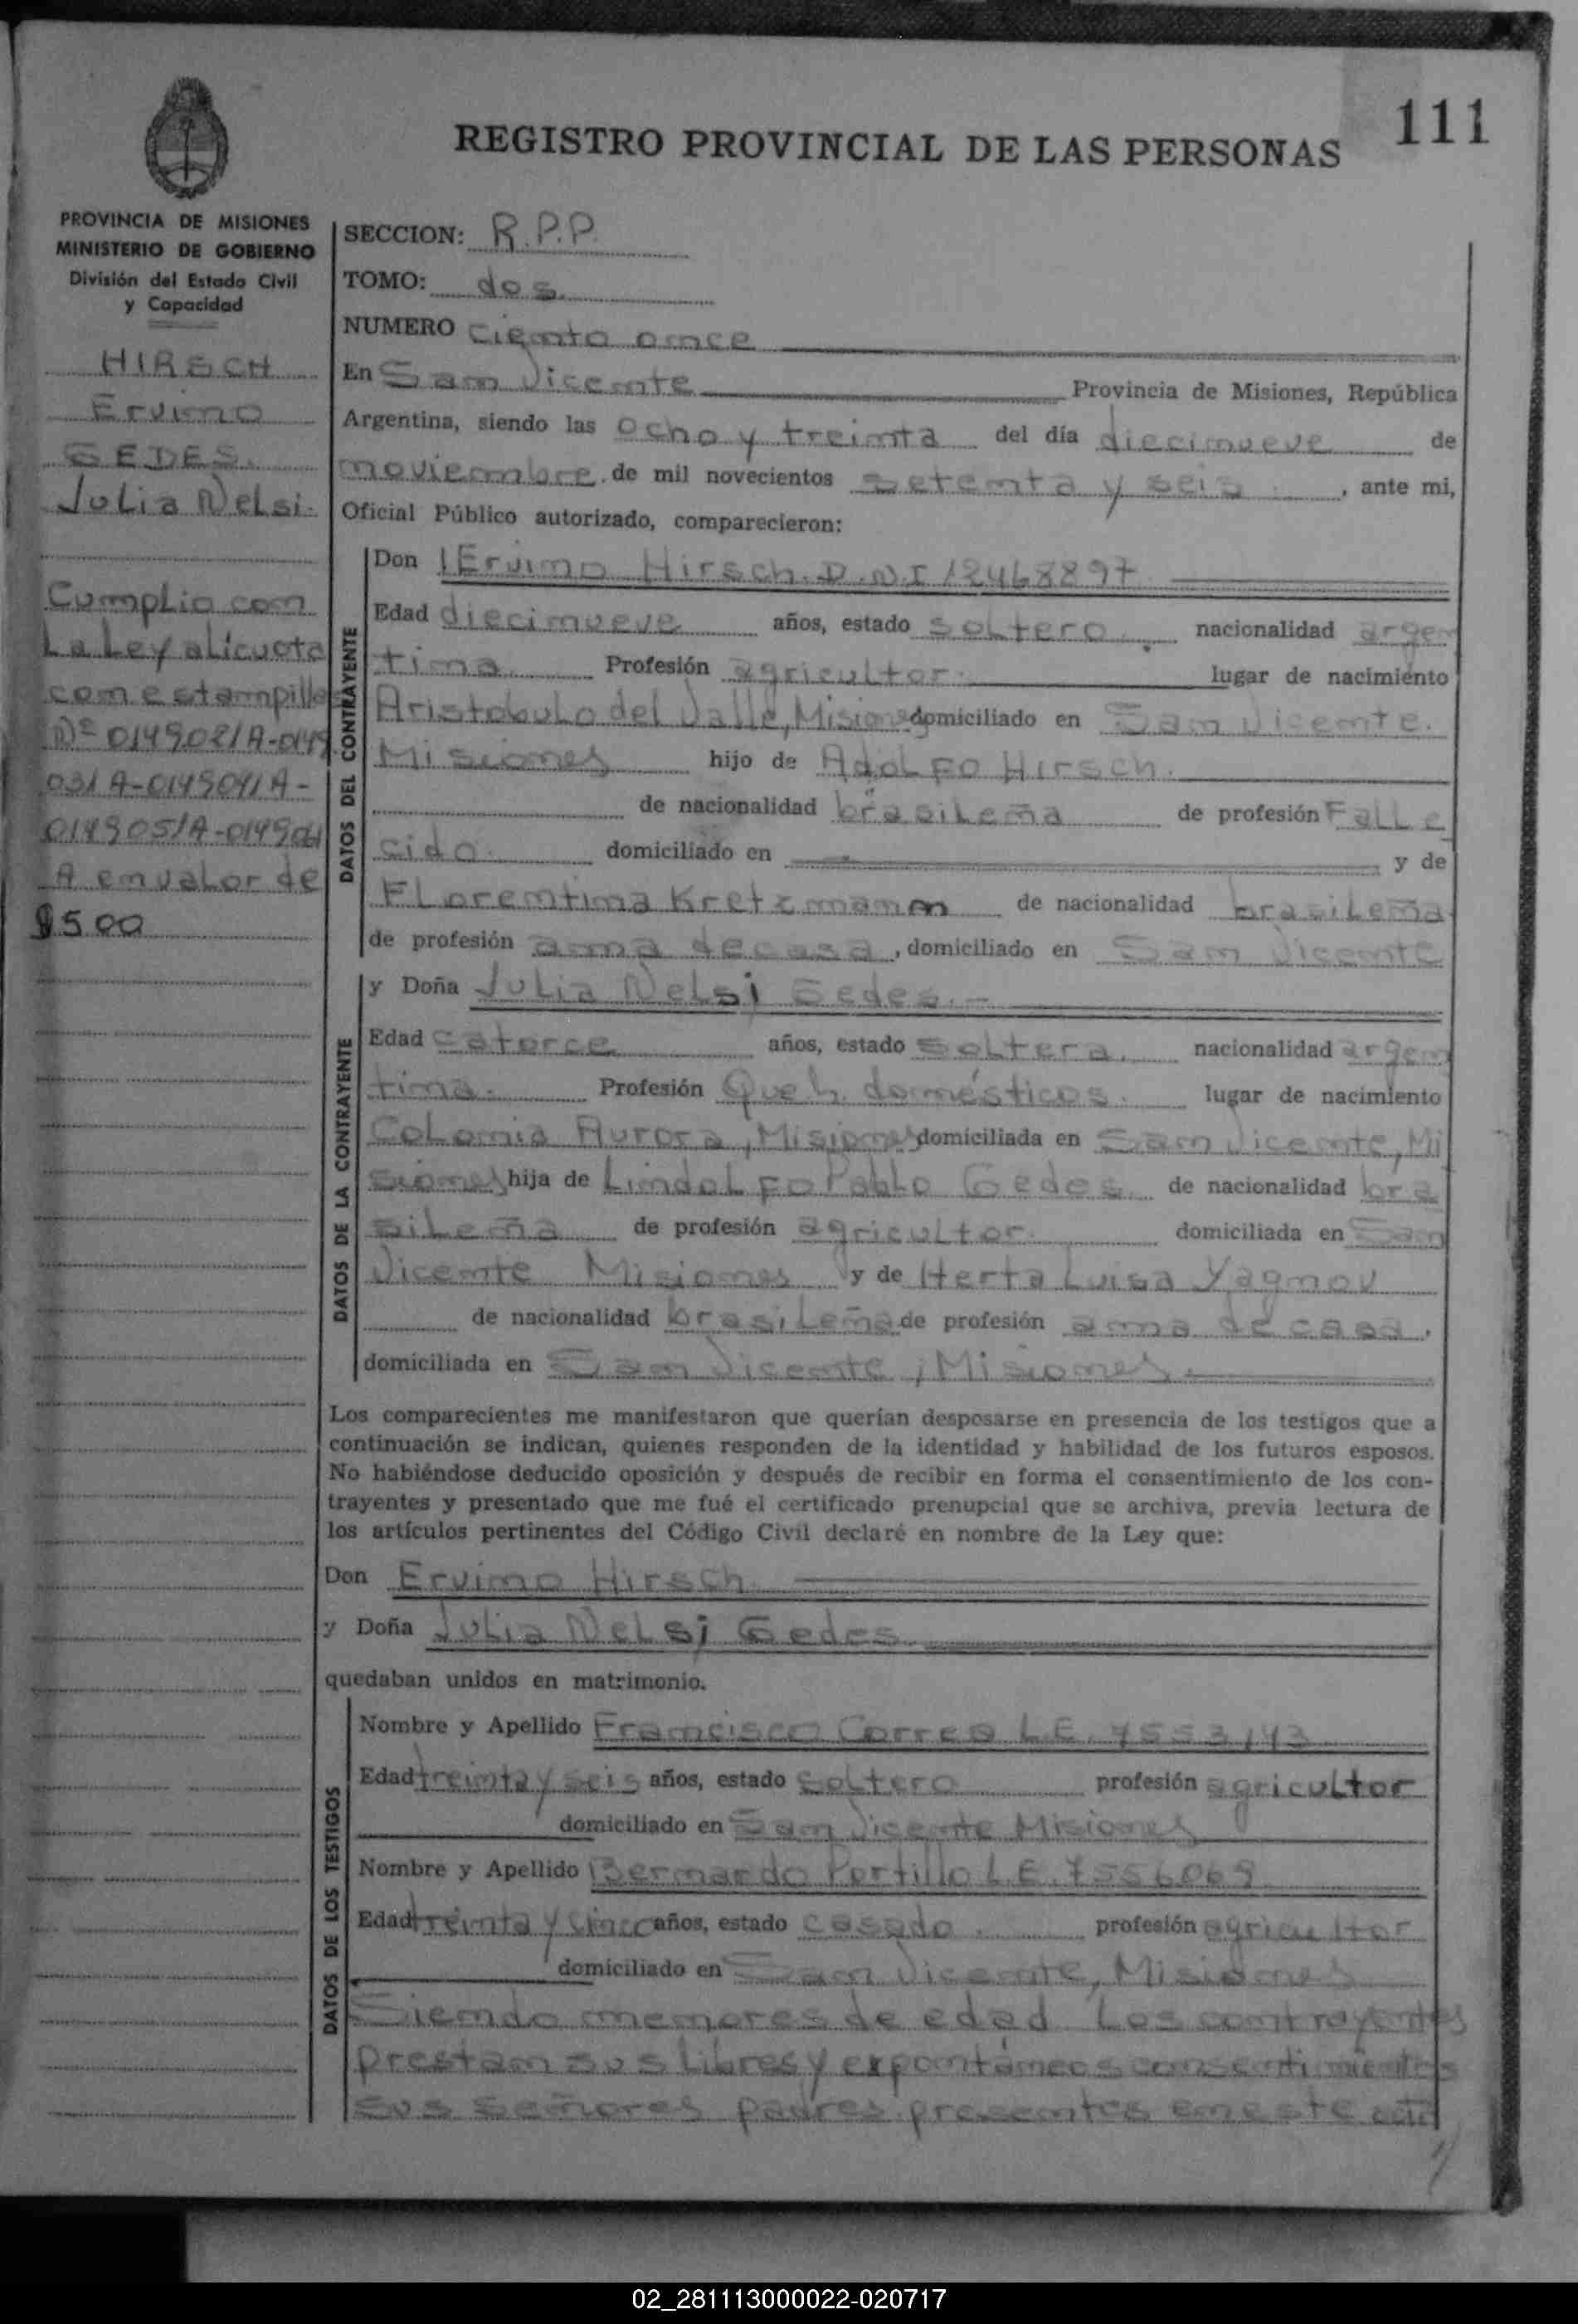 111
REGISTRO PROVINCIAL DE LAS PERSONAS
PROVINCIA DE MISIONES
MINISTERIO DE GOBIERNO
División del Estado Civil
y Capacidad
HIRSCH
Ervino
GEDES.
Julia Nelsi.
Cumplio con
La Ley alicuota
con estampillas
Nº 014902/A-0149
03/A-014904/A-
014905/A-014906/
A en valor de
$500
SECCION: R.P.P.
TOMO: dos.
NUMERO ciento once
En San Vicente Provincia de Misiones, República
Argentina, siendo las ocho y treinta del día diecinueve de
noviembre de mil novecientos setenta y seis , ante mi,
Oficial Público autorizado, comparecieron:
DATOS DEL CONTRAYENTE
Don Ervino Hirsch. D.N.I 12468897
Edad diecinueve años, estado soltero. nacionalidad argen
tina. Profesión agricultor. lugar de nacimiento
Aristobulo del Valle, Misiones domiciliado en San Vicente.
Misiones hijo de Adolfo Hirsch.
de nacionalidad brasileña de profesión Falle
cido. domiciliado en y de
Florentina Kretzmann de nacionalidad brasileña
de profesión ama de casa, domiciliado en San Vicente
DATOS DE LA CONTRAYENTE
y Doña Julia Nelsi Gedes.-
Edad catorce años, estado soltera. nacionalidad argen
tina. Profesión Queh. domésticos. lugar de nacimiento
Colonia Aurora, Misiones domiciliada en San Vicente, Mi
siones hija de Lindolfo Pablo Gedes. de nacionalidad bra
sileña de profesión agricultor. domiciliada en San
Vicente Misiones y de Herta Luisa Yagnov
de nacionalidad brasileña de profesión ama de casa,
domiciliada en San Vicente, Misiones.
Los comparecientes me manifestaron que querían desposarse en presencia de los testigos que a
continuación se indican, quienes responden de la identidad y habilidad de los futuros esposos.
No habiéndose deducido oposición y después de recibir en forma el consentimiento de los con-
trayentes y presentado que me fué el certificado prenupcial que se archiva, previa lectura de
los artículos pertinentes del Código Civil declaré en nombre de la Ley que:
Don Ervino Hirsch.
y Doña Julia Nelsi Gedes.
quedaban unidos en matrimonio.
DATOS DE LOS TESTIGOS
Nombre y Apellido Francisco Correa L.E. 7553143
Edad treinta y seis años, estado soltero profesión agricultor
domiciliado en San Vicente Misiones
Nombre y Apellido Bernardo Portillo L.E. 7556069
Edad treinta y cinco años, estado casado. profesión agricultor
domiciliado en San Vicente, Misiones
Siendo menores de edad Los contrayentes
prestan sus libres y expontáneos consentimientos
sus señores padres presentes en este acto
02_281113000022-020717